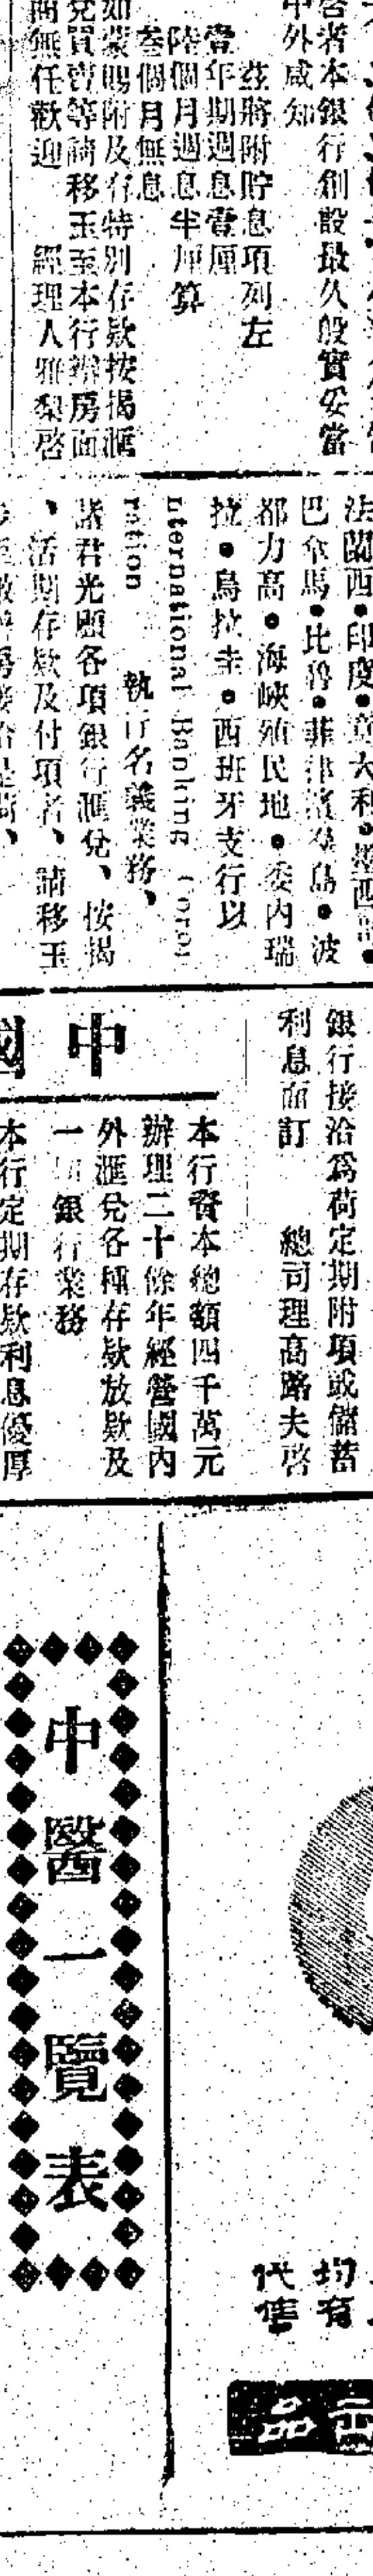 啓者本銀行創設最久殷實妥當
中外咸知
茲將附貯息項列左
壹年期週息壹厘
陸個月週息半厘算
叁個月無息
如蒙賜附及存特別存欵按揭滙
兌買賣等請移玉至本行辦房面
商無任歡迎　經理人雅梨啓
法蘭西●印度●意大利●墨西哥●
巴拿馬●比魯●菲律濱羣島●波
都力高●海峽殖民地●委內瑞
拉●烏拉圭●西班牙支行以
nternational Banking Corpo
ration　執行名義業務、
諸君光顧各項銀行滙兌、按揭
、活期存欵及付項者、請移玉
銀行接洽爲荷定期附項或儲蓄
利息面訂　總司理高路夫啓
中國
本行資本總額四千萬元
辦理二十餘年經營國內
外滙兌各種存欵放欵及
一切銀行業務
本行定期存欵利息優厚
均有
代售
中醫一覽表